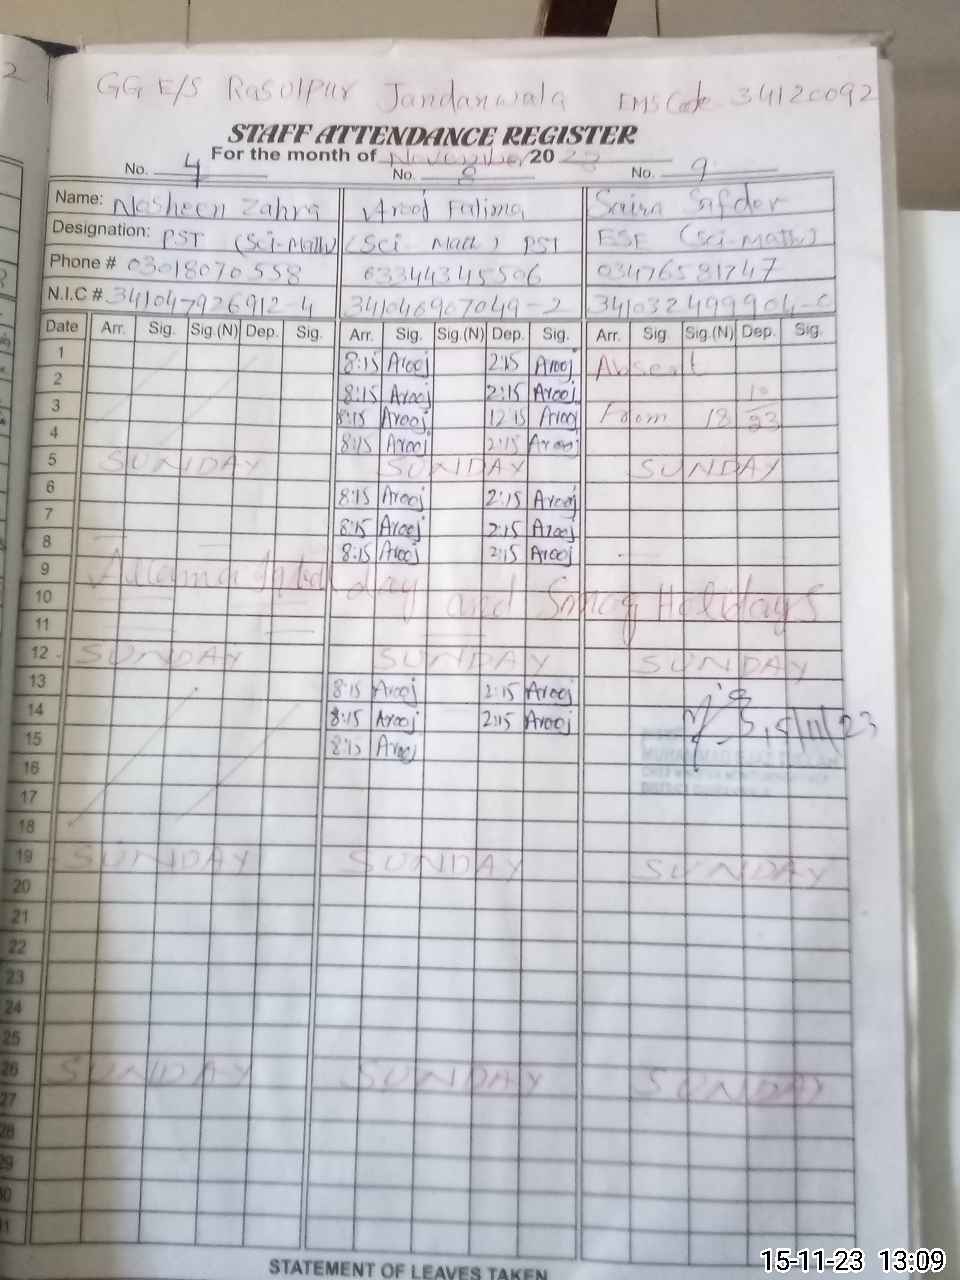 2
GG E/S Rasulpur Jandanwala EMS Code 34120092
STAFF ATTENDANCE REGISTER
For the month of November 20 23
No. 4 No. 8 No. 9
Name: Nosheen Zahra Arooj Fatima Saira Safdar
Designation: PST (Sci-Math) (Sci Math) PST ESE (Sci-Math)
Phone # 03018070558 03344345506 03476581747
N.I.C # 341047926912-4 341046907049-2 341032499904-0
Date Arr. Sig. Sig.(N) Dep. Sig. Arr. Sig. Sig.(N) Dep. Sig. Arr. Sig Sig.(N) Dep. Sig.
1 8:15 Arooj 2:15 Arooj Absent
2 8:15 Arooj 2:15 Arooj
3 8:15 Arooj 12:15 Arooj From 18 10 23
4 8:15 Arooj 2:15 Arooj
5 SUNDAY SUNDAY SUNDAY
6 8:15 Arooj 2:15 Arooj
7 8:15 Arooj 2:15 Arooj
8 8:15 Arooj 2:15 Arooj
9 Allama Iqbal day and Smog Holidays
10
11
12 SUNDAY SUNDAY SUNDAY
13 8:15 Arooj 2:15 Arooj
14 8:15 Arooj 2:15 Arooj 15/11/23
15 8:15 Arooj
16
17
18
19 SUNDAY SUNDAY SUNDAY
20
21
22
23
24
25
26 SUNDAY SUNDAY SUNDAY
27
28
29
30
31
STATEMENT OF LEAVES TAKEN
15-11-23 13:09